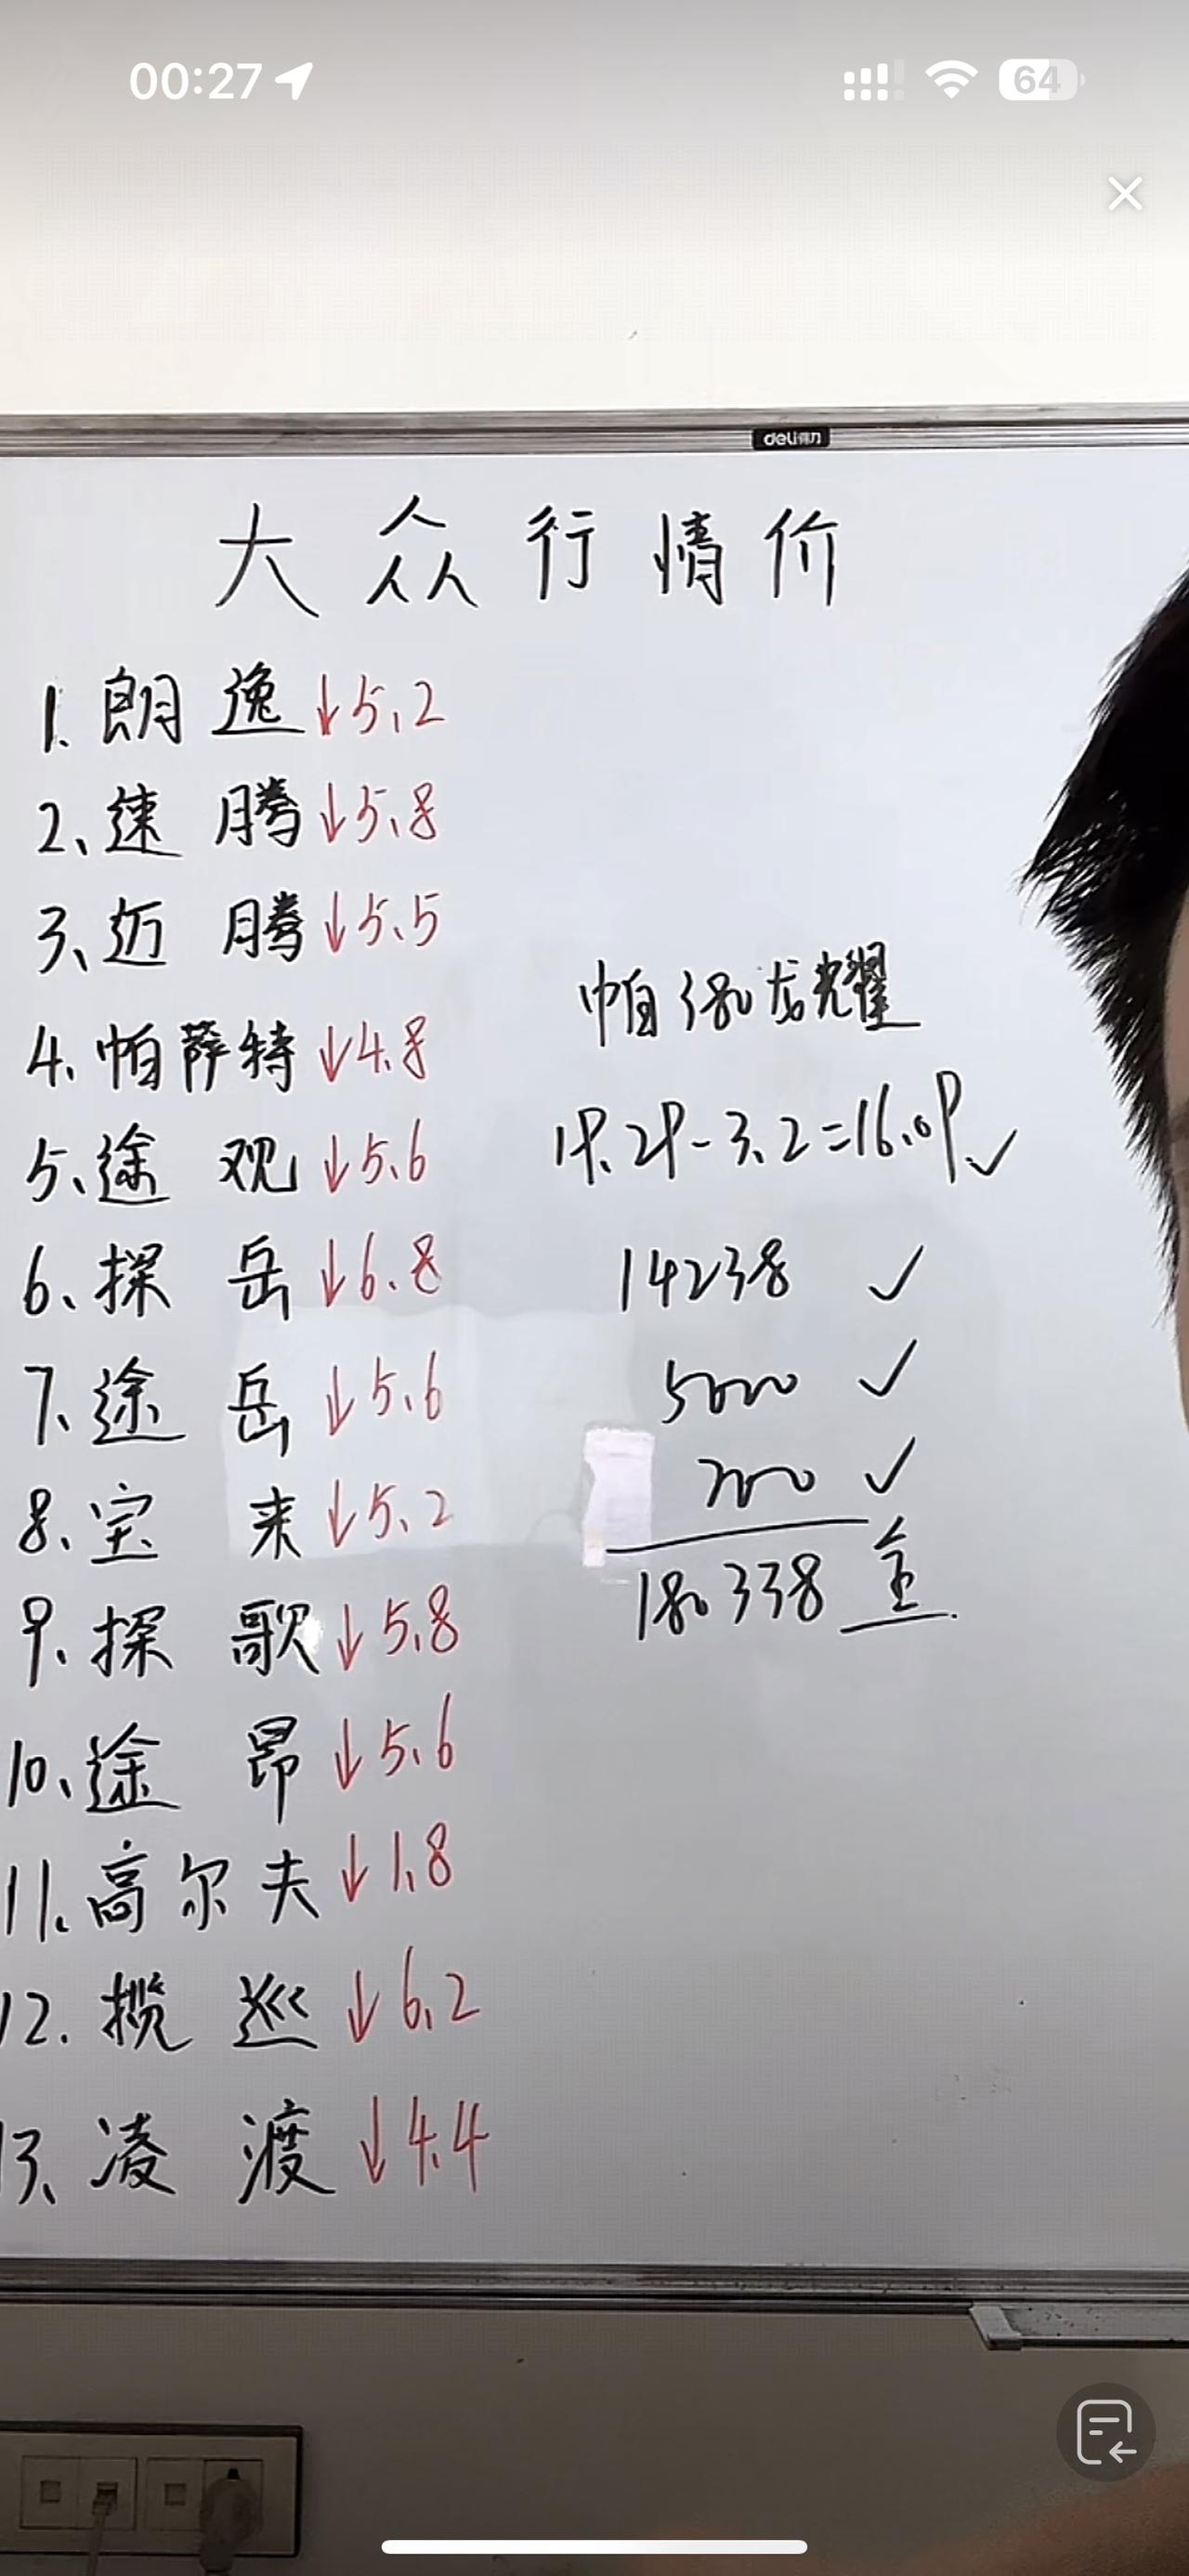 00:27
64
deli得力
大众行情价
1.朗逸↓5.2
2、速腾↓5.8
3、迈腾↓5.5
4.帕萨特↓4.8
5、途观↓5.6
6、探岳↓6.8
7、途岳↓5.6
8、宝来↓5.2
9、探歌↓5.8
10、途昂↓5.6
11.高尔夫↓1.8
12.揽巡↓6.2
13、凌渡↓4.4
帕380龙耀
19.29-3.2=16.09✓
14238 ✓
5000 ✓
2000 ✓
180338 全